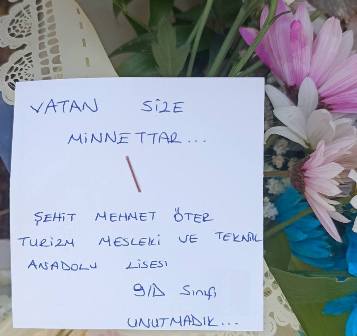 VATAN SİZE
MİNNETTAR...
ŞEHİT MEHMET ÖTER
TURİZM MESLEKİ VE TEKNİK
ANADOLU LİSESİ
9/D Sınıfı
UNUTMADIK...